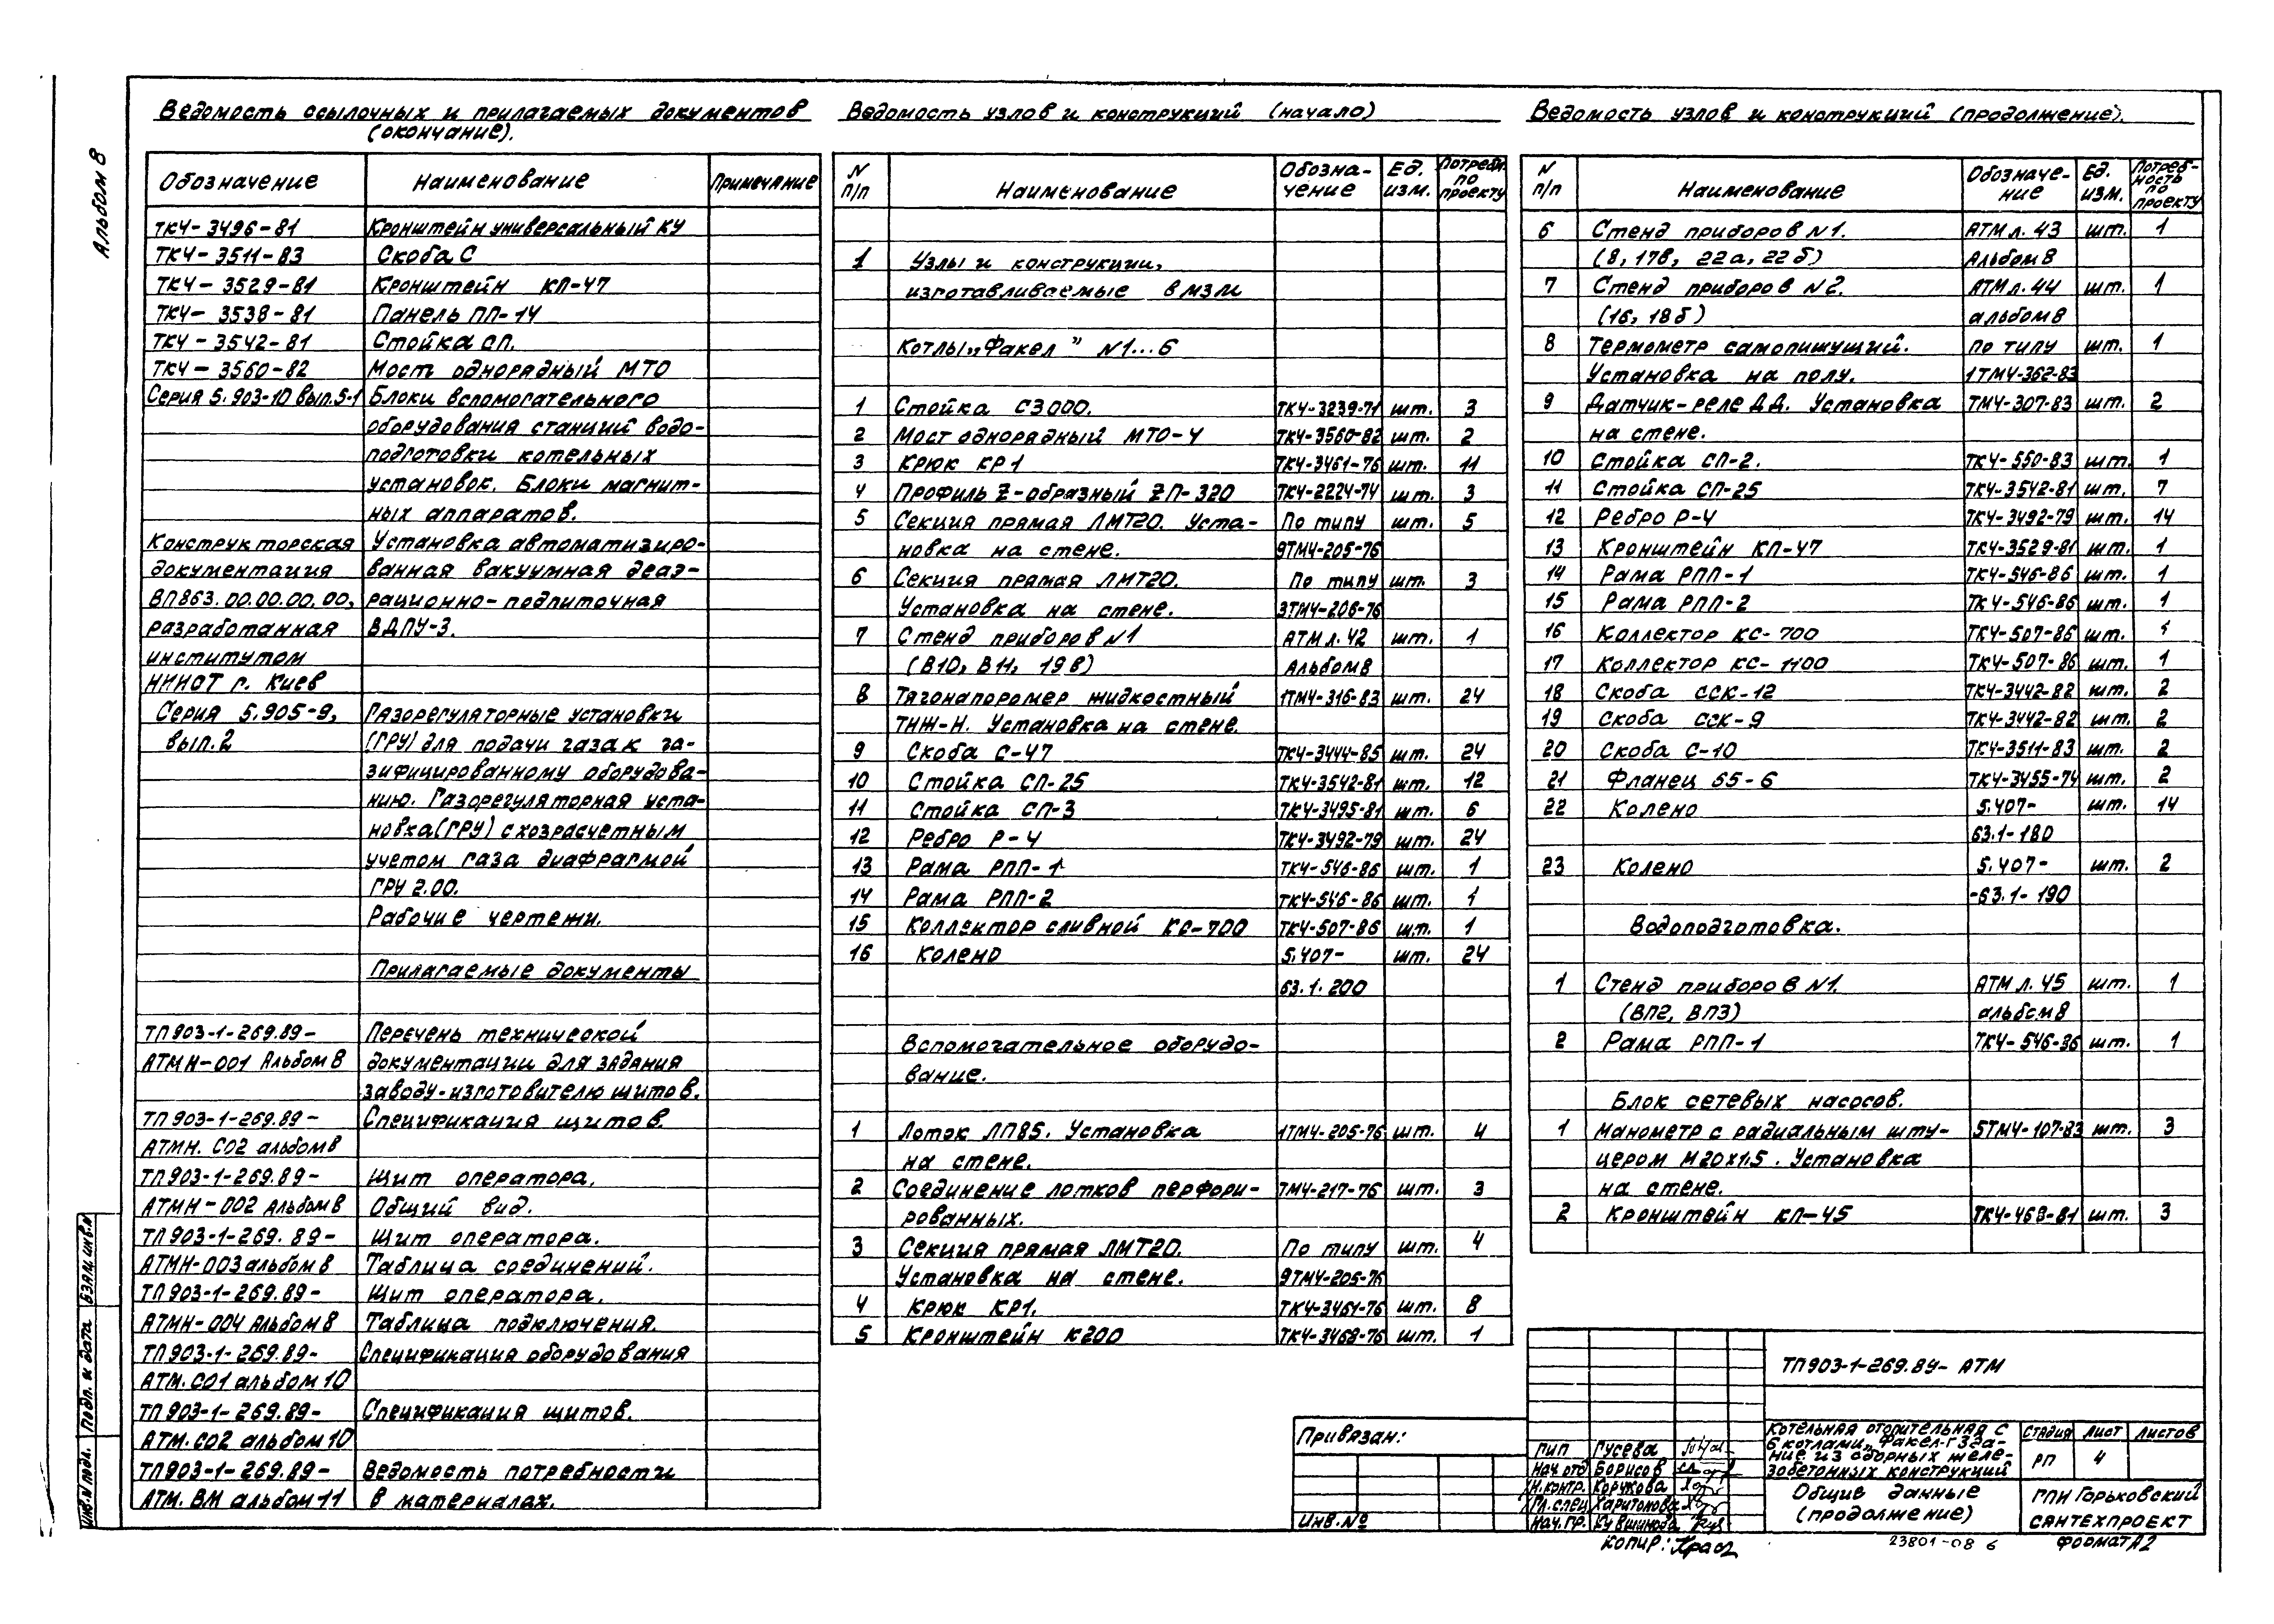 Альбом 8
Ведомость ссылочных и прилагаемых документов
(окончание).
Обозначение Наименование Примечание
ТК4-3496-81 Кронштейн универсальный КУ
ТК4-3511-83 Скоба С
ТК4-3529-81 Кронштейн КП-47
ТК4-3538-81 Панель ПП-14
ТК4-3542-81 Стойка СП.
ТК4-3560-82 Мост однорядный МТО
Серия 5.903-10 вып.5-1 Блоки вспомогательного
оборудования станций водо-
подготовки котельных
установок. Блоки магнит-
ных аппаратов.
Конструкторская Установка автоматизиро-
документация ванная вакуумная деаэ-
ВП863.00.00.00.00, рационно-подпиточная
разработанная ВДПУ-3.
институтом
НИИСТ г. Киев
Серия 5.905-9, Газорегуляторные установки
вып.2 (ГРУ) для подачи газа к га-
зифицированному оборудова-
нию. Газорегуляторная уста-
новка (ГРУ) с хозрасчетным
учетом газа диафрагмой
ГРУ 2.00.
Рабочие чертежи.
Прилагаемые документы
ТП903-1-269.89- Перечень технической
АТМН-001 Альбом 8 документации для задания
заводу-изготовителю щитов.
ТП903-1-269.89- Спецификация щитов.
АТМН. СО2 альбом 8
ТП903-1-269.89- Щит оператора.
АТМН-002 Альбом 8 Общий вид.
ТП903-1-269.89- Щит оператора.
АТМН-003 альбом 8 Таблица соединений.
ТП903-1-269.89- Щит оператора.
АТМН-004 Альбом 8 Таблица подключения.
ТП903-1-269.89- Спецификация оборудования
АТМ.СО1 альбом 10
ТП903-1-269.89- Спецификация щитов.
АТМ.СО2 альбом 10
ТП903-1-269.89- Ведомость потребности
АТМ.ВМ альбом 11 в материалах.
Ведомость узлов и конструкций (начало)
N п/п Наименование Обозна-чение Ед. изм. Потребн. по проекту
1 Узлы и конструкции,
изготавливаемые в МЗМ
Котлы „Факел" N1...6
1 Стойка С3000. ТК4-3239-71 шт. 3
2 Мост однорядный МТО-4 ТК4-3560-82 шт. 2
3 Крюк КР1 ТК4-3461-76 шт. 11
4 Профиль Z-образный ZП-320 ТК4-2224-74 шт. 3
5 Секция прямая ЛМТ20. Уста- По типу шт. 5
новка на стене. 9ТМ4-205-76
6 Секция прямая ЛМТ20. По типу шт. 3
Установка на стене. 3ТМ4-206-76
7 Стенд приборов N1 АТМ л. 42 шт. 1
(В10, В11, 19в) Альбом 8
8 Тягонапоромер жидкостный 1ТМ4-316-83 шт. 24
ТНЖ-Н. Установка на стене.
9 Скоба С-47 ТК4-3444-85 шт. 24
10 Стойка СП-25 ТК4-3542-81 шт. 12
11 Стойка СП-3 ТК4-3495-81 шт. 6
12 Ребро Р-4 ТК4-3492-79 шт. 24
13 Рама РПП-1 ТК4-546-86 шт. 1
14 Рама РПП-2 ТК4-546-86 шт. 1
15 Коллектор сливной КС-700 ТК4-507-86 шт. 1
16 Колено 5.407- шт. 24
63.1.200
Вспомогательное оборудо-
вание.
1 Лоток ЛП85. Установка 1ТМ4-205-76 шт. 4
на стене.
2 Соединение лотков перфори- ТМ4-217-76 шт. 3
рованных.
3 Секция прямая ЛМТ20. По типу шт. 4
Установка на стене. 9ТМ4-205-76
4 Крюк КР1. ТК4-3461-76 шт. 8
5 Кронштейн К200 ТК4-3468-76 шт. 1
Ведомость узлов и конструкций (продолжение).
N п/п Наименование Обозначе-ние Ед. изм. Потреб-ность по проекту
6 Стенд приборов N1. АТМ л. 43 шт. 1
(8, 17в, 22а, 22б) Альбом 8
7 Стенд приборов N2. АТМ л. 44 шт. 1
(16, 18б) альбом 8
8 Термометр самопишущий. По типу шт. 1
Установка на полу. 1ТМ4-362-83
9 Датчик-реле ДД. Установка ТМ4-307-83 шт. 2
на стене.
10 Стойка СП-2. ТК4-550-83 шт. 1
11 Стойка СП-25 ТК4-3542-81 шт. 7
12 Ребро Р-4 ТК4-3492-79 шт. 14
13 Кронштейн КП-47 ТК4-3529-81 шт. 1
14 Рама РПП-1 ТК4-546-86 шт. 1
15 Рама РПП-2 ТК4-546-86 шт. 1
16 Коллектор КС-700 ТК4-507-86 шт. 1
17 Коллектор КС-1100 ТК4-507-86 шт. 1
18 Скоба ССК-12 ТК4-3442-82 шт. 2
19 Скоба ССК-9 ТК4-3442-82 шт. 2
20 Скоба С-10 ТК4-3511-83 шт. 2
21 Фланец 65-6 ТК4-3455-74 шт. 2
22 Колено 5.407- шт. 14
63.1-180
23 Колено 5.407- шт. 2
-63.1-190
Водоподготовка.
1 Стенд приборов N1. АТМ л. 45 шт. 1
(ВП2, ВП3) альбом 8
2 Рама РПП-1 ТК4-546-86 шт. 1
Блок сетевых насосов.
1 Манометр с радиальным шту- 5ТМ4-107-83 шт. 3
цером М20х1,5. Установка
на стене.
2 Кронштейн КП-45 ТК4-468-81 шт. 3
Привязан:
Инв.№
ТП903-1-269.89- АТМ
ГИП Гусева
Нач.отд Борисов
Н.контр. Коружова
Гл.спец Харитонова
Нач.гр. Кувшинова
Котельная отопительная с
6 котлами „Факел-Г" Зда-
ние из сборных желе-
зобетонных конструкций
Стадия Лист Листов
РП 4
Общие данные
(продолжение)
ГПИ Горьковский
САНТЕХПРОЕКТ
Копир:
23801-08 6
Формат А2
Взам. инв.N
Подп. и дата
Инв.N подл.